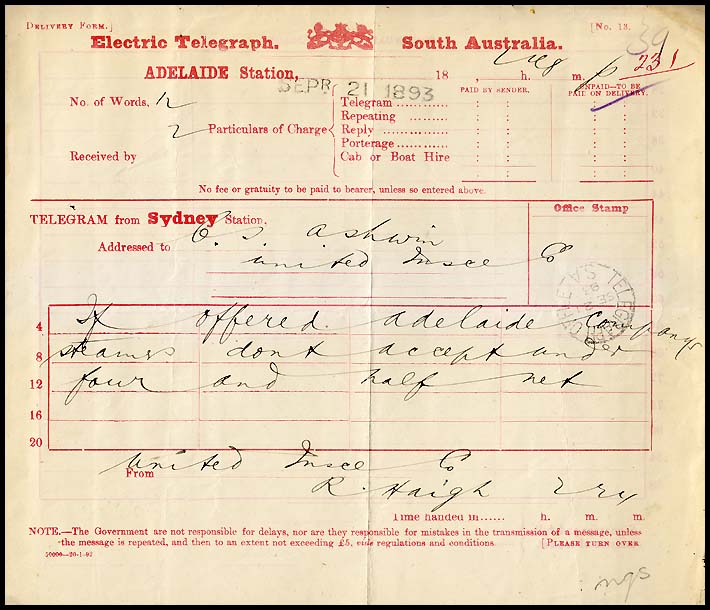 DELIVERY FORM.]
[No. 13.
39
Electric Telegraph. South Australia.
Urg p 231
ADELAIDE Station, 18 , h. m.
SEPR 21 1893
PAID BY SENDER.
UNPAID—TO BE PAID ON DELIVERY.
No. of Words, 12
2
Particulars of Charge
Telegram
Repeating
Reply
Porterage
Cab or Boat Hire
Received by
No fee or gratuity to be paid to bearer, unless so entered above.
TELEGRAM from Sydney Station.
Office Stamp
Addressed to C. S. Ashwin
United Insce Co
TELEGRAPH OFFICE S.A.
If offered adelaide Companys
4
steamers dont accept under
8
four and half net
12
16
20
From United Insce Co
R. Haigh
Time handed in...... h. m. m.
NOTE.—The Government are not responsible for delays, nor are they responsible for mistakes in the transmission of a message, unless
the message is repeated, and then to an extent not exceeding £5, vide regulations and conditions. [PLEASE TURN OVER
50000—20-1-92